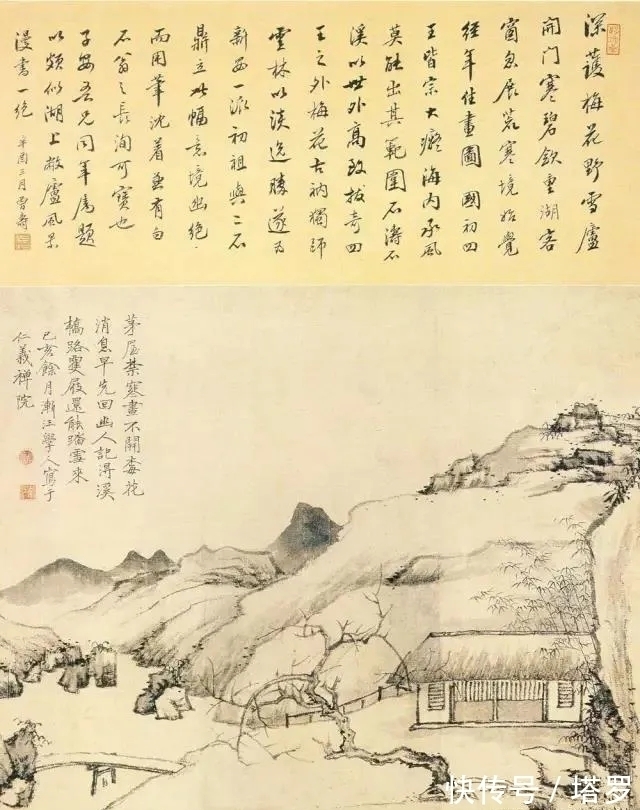 深護梅花野雪廬
開門寒碧飲重湖客
窗忽展荒寒境始覺
經年住畫圖 國初四
王皆宗大癡海内承風
莫能出其範圍石濤石
溪以世外高致拔奇四
王之外梅花古衲獨師
雲林以淡逸勝遂為
新安一派初祖與二石
鼎立此幅意境幽絕
而用筆沈着兼有白
石翁之長洵可寶也
子安吾兄同年屬題
以頗似湖上敝廬風景
漫書一絕 辛酉三月曾壽
茅屋禁寒晝不開梅花
消息早先回幽人記得溪
橋路雙屐還能踏雪來
己亥餘月漸江學人寫于
仁義禪院
快传号 / 塔罗